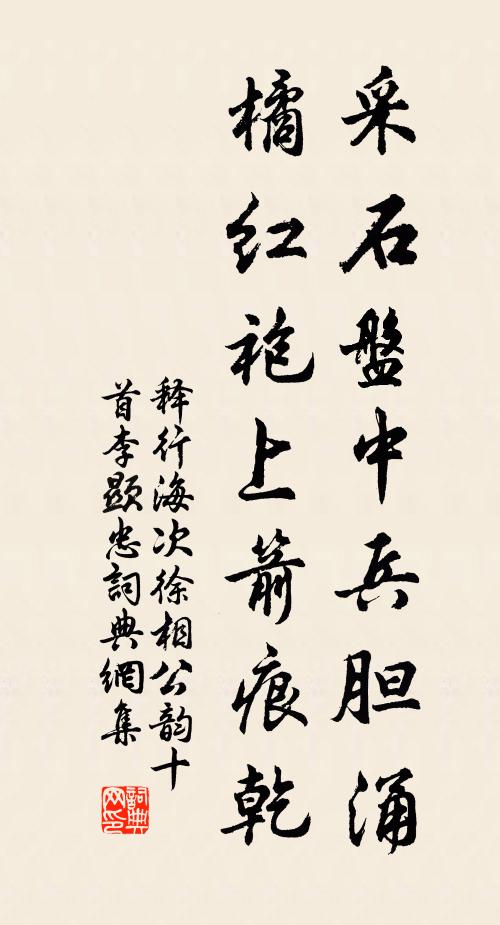 采石盤中兵胆涌
橘红袍上箭痕乾
释行海次徐相公韵十
首李顯忠詞典網集
詞典
网印